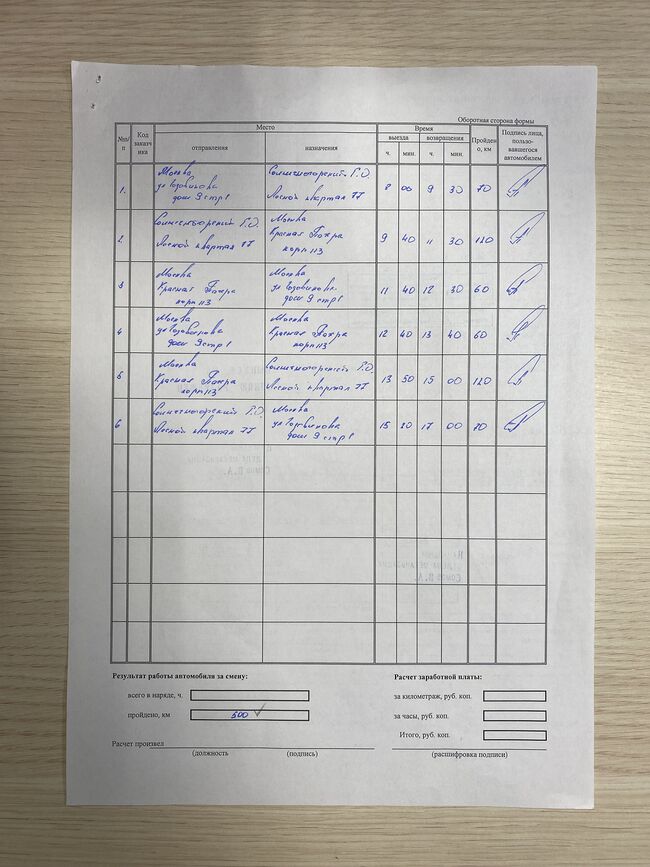 Оборотная сторона формы
№п/п
Код заказчика
Место
Время
Пройдено, км
Подпись лица, пользовавшегося автомобилем
отправления
назначения
выезда
возвращения
ч.
мин.
ч.
мин.
1.
Москва
ул Годовикова
дом 9 стр 1
Солнечногорский Г.О.
Лесной квартал 77
8 00 9 30 70
2
Солнечногорский Г.О.
Лесной квартал 77
Москва
Красная Пахра
корп 113
9 40 11 30 120
3
Москва
Красная Пахра
корп 113
Москва
ул Годовикова
дом 9 стр 1
11 40 12 30 60
4
Москва
ул Годовикова
дом 9 стр 1
Москва
Красная Пахра
корп 113
12 40 13 40 60
5
Москва
Красная Пахра
корп 113
Солнечногорский Г.О.
Лесной квартал 77
13 50 15 00 120
6
Солнечногорский Г.О.
Лесной квартал 77
Москва
ул Годовикова
дом 9 стр 1
15 20 17 00 70
Результат работы автомобиля за смену:
всего в наряде, ч.
пройдено, км
500
Расчет произвел
(должность
(подпись)
Расчет заработной платы:
за километраж, руб. коп.
за часы, руб. коп.
Итого, руб. коп.
(расшифровка подписи)